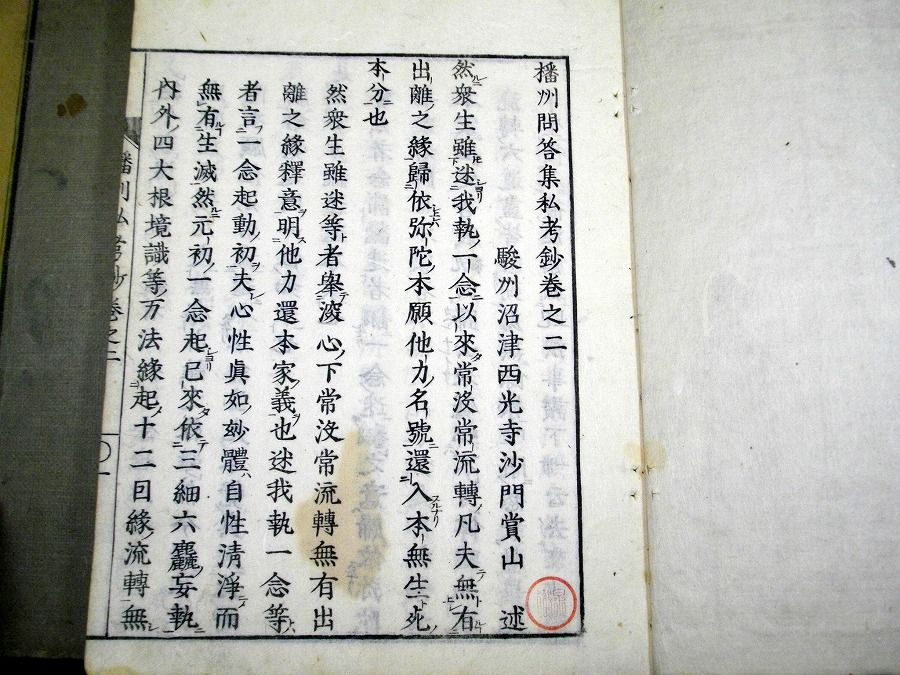 播州問答集私考鈔巻之二
駿州沼津西光寺沙門賞山 述
然衆生雖迷我執一念以來常没常流轉凡夫無有
出離之縁歸依弥陀本願他力名號還入本無生死
本分也
然衆生雖迷等者舉深心下常没常流轉無有出
離之縁釋意明他力還本家義也迷我執一念等
者言一念起動初夫心性眞如妙體自性清淨而
無有生滅然元初一念起已來依三細六麤妄執
內外四大根境識等万法縁起十二因縁流轉無
播州私考鈔巻之二
〇一